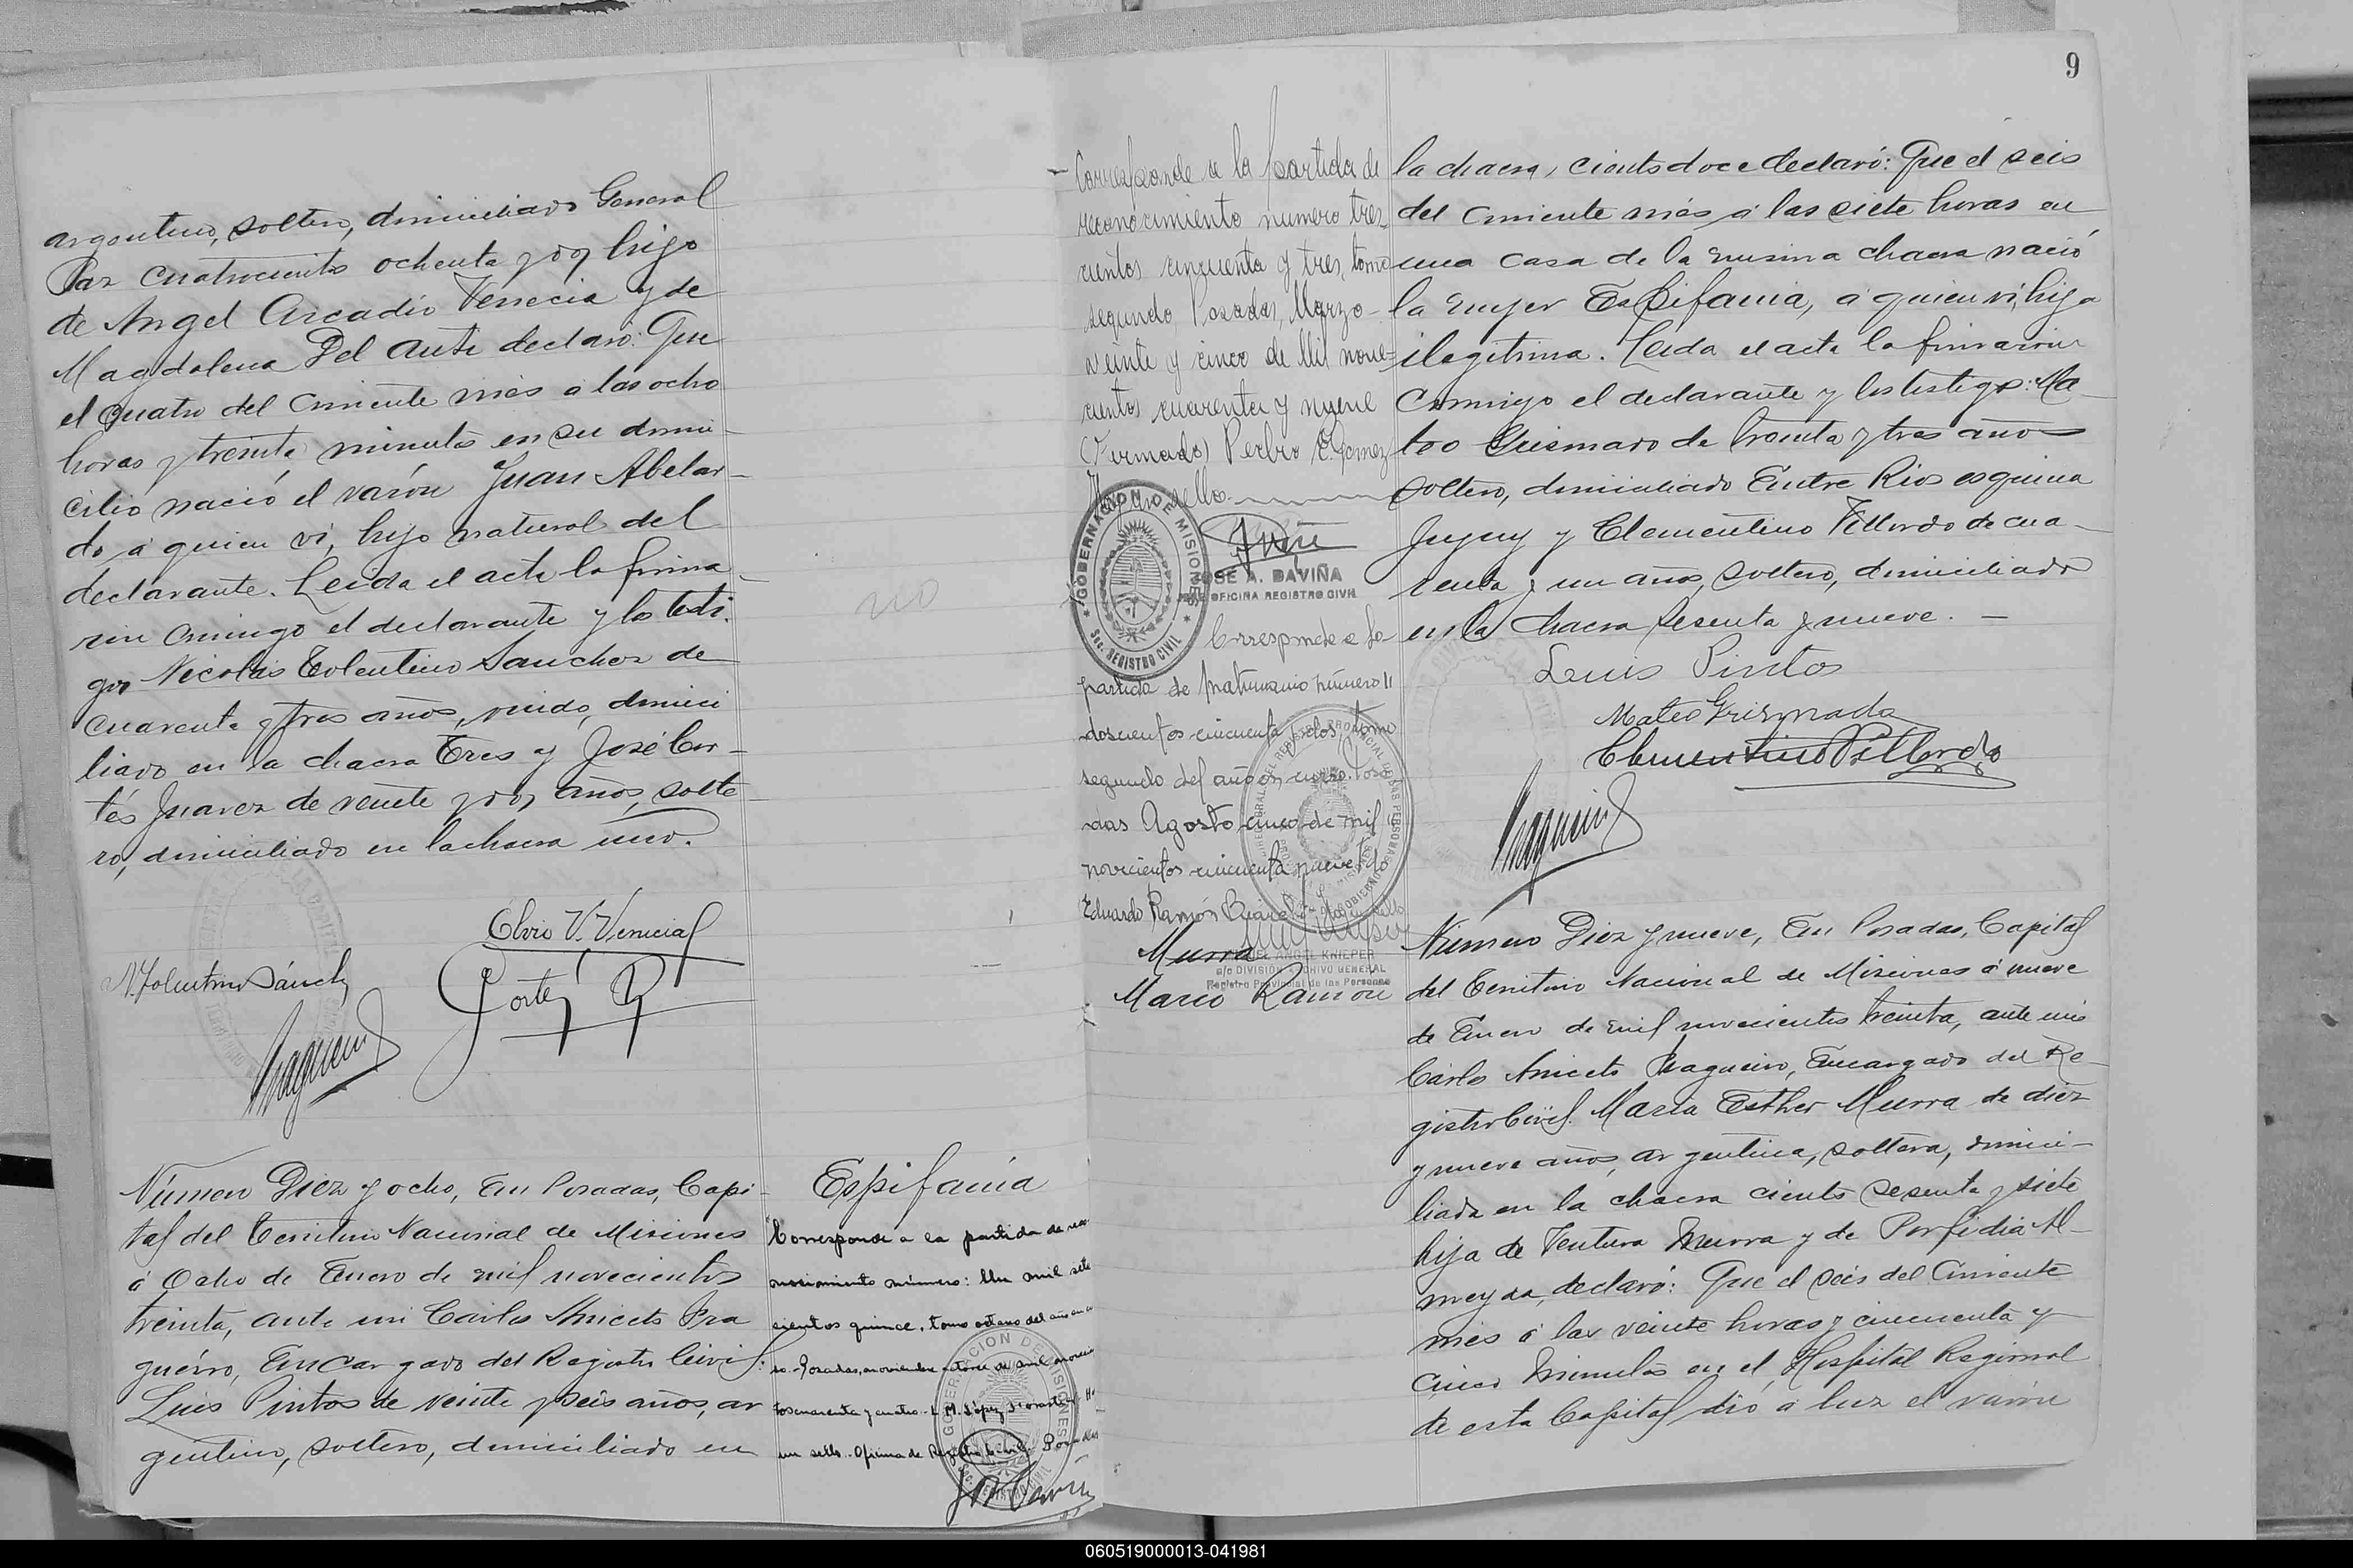 argentino, soltero, domiciliado General
Paz cuatrocientos ochenta y dos hijo
de Angel Arcadio Venecia y de
Magdalena Del ante declaró: Que
el cuatro del corriente mes a las ocho
horas y treinta minutos en su domi-
cilio nació el varón Juan Abelar-
do á quien vi, hijo natural del
declarante. Leida el acta la firma-
ron conmigo el declarante y los testi-
gos Nicolás Tolentino Sanchez de
cuarenta y tres años, viudo, domici
liado en la chacra Tres y José Cor-
tés Juarez de veinte y dos años, solte-
ro, domiciliado en la chacra uno.
Elvio V. Venecia
N. Tolentino Sánch
Cortés
no
Número Diez y ocho, En Posadas, Capi-
tal del Territorio Nacional de Misiones
á Ocho de Enero de mil novecientos
treinta, ante mi Carlos Aniceto Fra
gueiro, Encargado del Registro Civil:
Luis Pintos de veinte y seis años, ar
gentino, soltero, domiciliado en
Espifanía
Corresponde a la partida de reco-
nocimiento número: Un mil sete
cientos quince, tomo octavo del año en cur
so. Posadas, noviembre catorce de mil novecien
tos cuarenta y cuatro. M. López
un sello. Oficina de Registro Civil. Posadas
GOBERNACION DE MISIONES
9
Corresponde a la partida de
reconocimiento numero tres-
cientos cincuenta y tres, tomo
segundo, Posadas, Marzo-
veinte y cinco de Mil nove-
cientos cuarenta y nueve
(Firmado) Pedro E. Gomez
Hay un sello.
GOBERNACION DE MISIONES
Sec. REGISTRO CIVIL
JOSE A. DAVIÑA
JEFE OFICINA REGISTRO CIVIL
Corresponde a la
partida de matrimonio número
doscientos cincuenta y dos, tomo
segundo del año en curso. Posa
das Agosto cinco de mil
novecientos cincuenta y nueve. fdo
Eduardo Ramón Hay un sello
MIGUEL ANGEL KNIEPER
a/c DIVISIÓN ARCHIVO GENERAL
Registro Provincial de las Personas
Murra
Mario Ramón
la chacra, ciento doce declaró: Que el seis
del corriente mes á las siete horas en
una casa de la misma chacra nació
la mujer Espifania, á quien vi, hija
ilegitima. Leida el acta la firmaron
conmigo el declarante y los testigos: Ma-
teo Grismado de treinta y tres años
soltero, domiciliado Entre Rios esquina
Jujuy y Clementino Villordo de cua-
renta y un años, soltero, domiciliado
en la chacra sesenta y nueve. —
Luis Pintos
Mateo Grismado
Clementino Villordo
Número Diez y nueve, En Posadas, Capital
del Territorio Nacional de Misiones á nueve
de Enero de mil novecientos treinta, ante mi
Carlos Aniceto Fragueiro, Encargado del Re-
gistro Civil: Maria Esther Murra de diez
y nueve años, argentina, soltera, domici-
liada en la chacra ciento sesenta y siete
hija de Ventura Murra y de Porfidia Al-
meyda, declaró: Que el seis del corriente
mes á las veinte horas y cincuenta y
cinco minutos en el Hospital Regional
de esta Capital dió á luz el varón
060519000013-041981